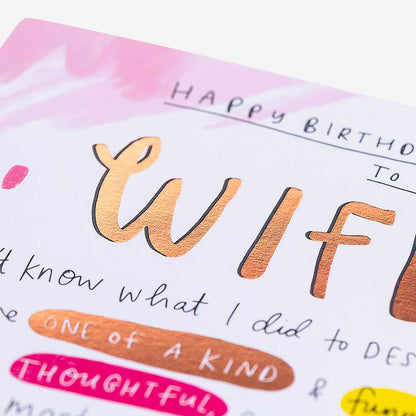 HAPPY BIRTHD
To
WIF
't know what I did to DES
ONE OF A KIND &
THOUGHTFUL,